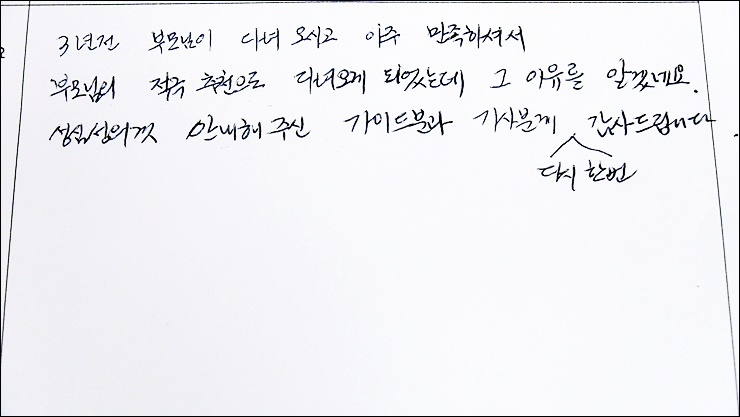 3년전 부모님이 다녀 오시고 아주 만족하셔서
부모님의 적극 추천으로 다녀오게 되었는데 그 이유를 알겠네요.
성심성의껏 안내해 주신 가이드분과 기사분께 감사드립니다.
다시 한번